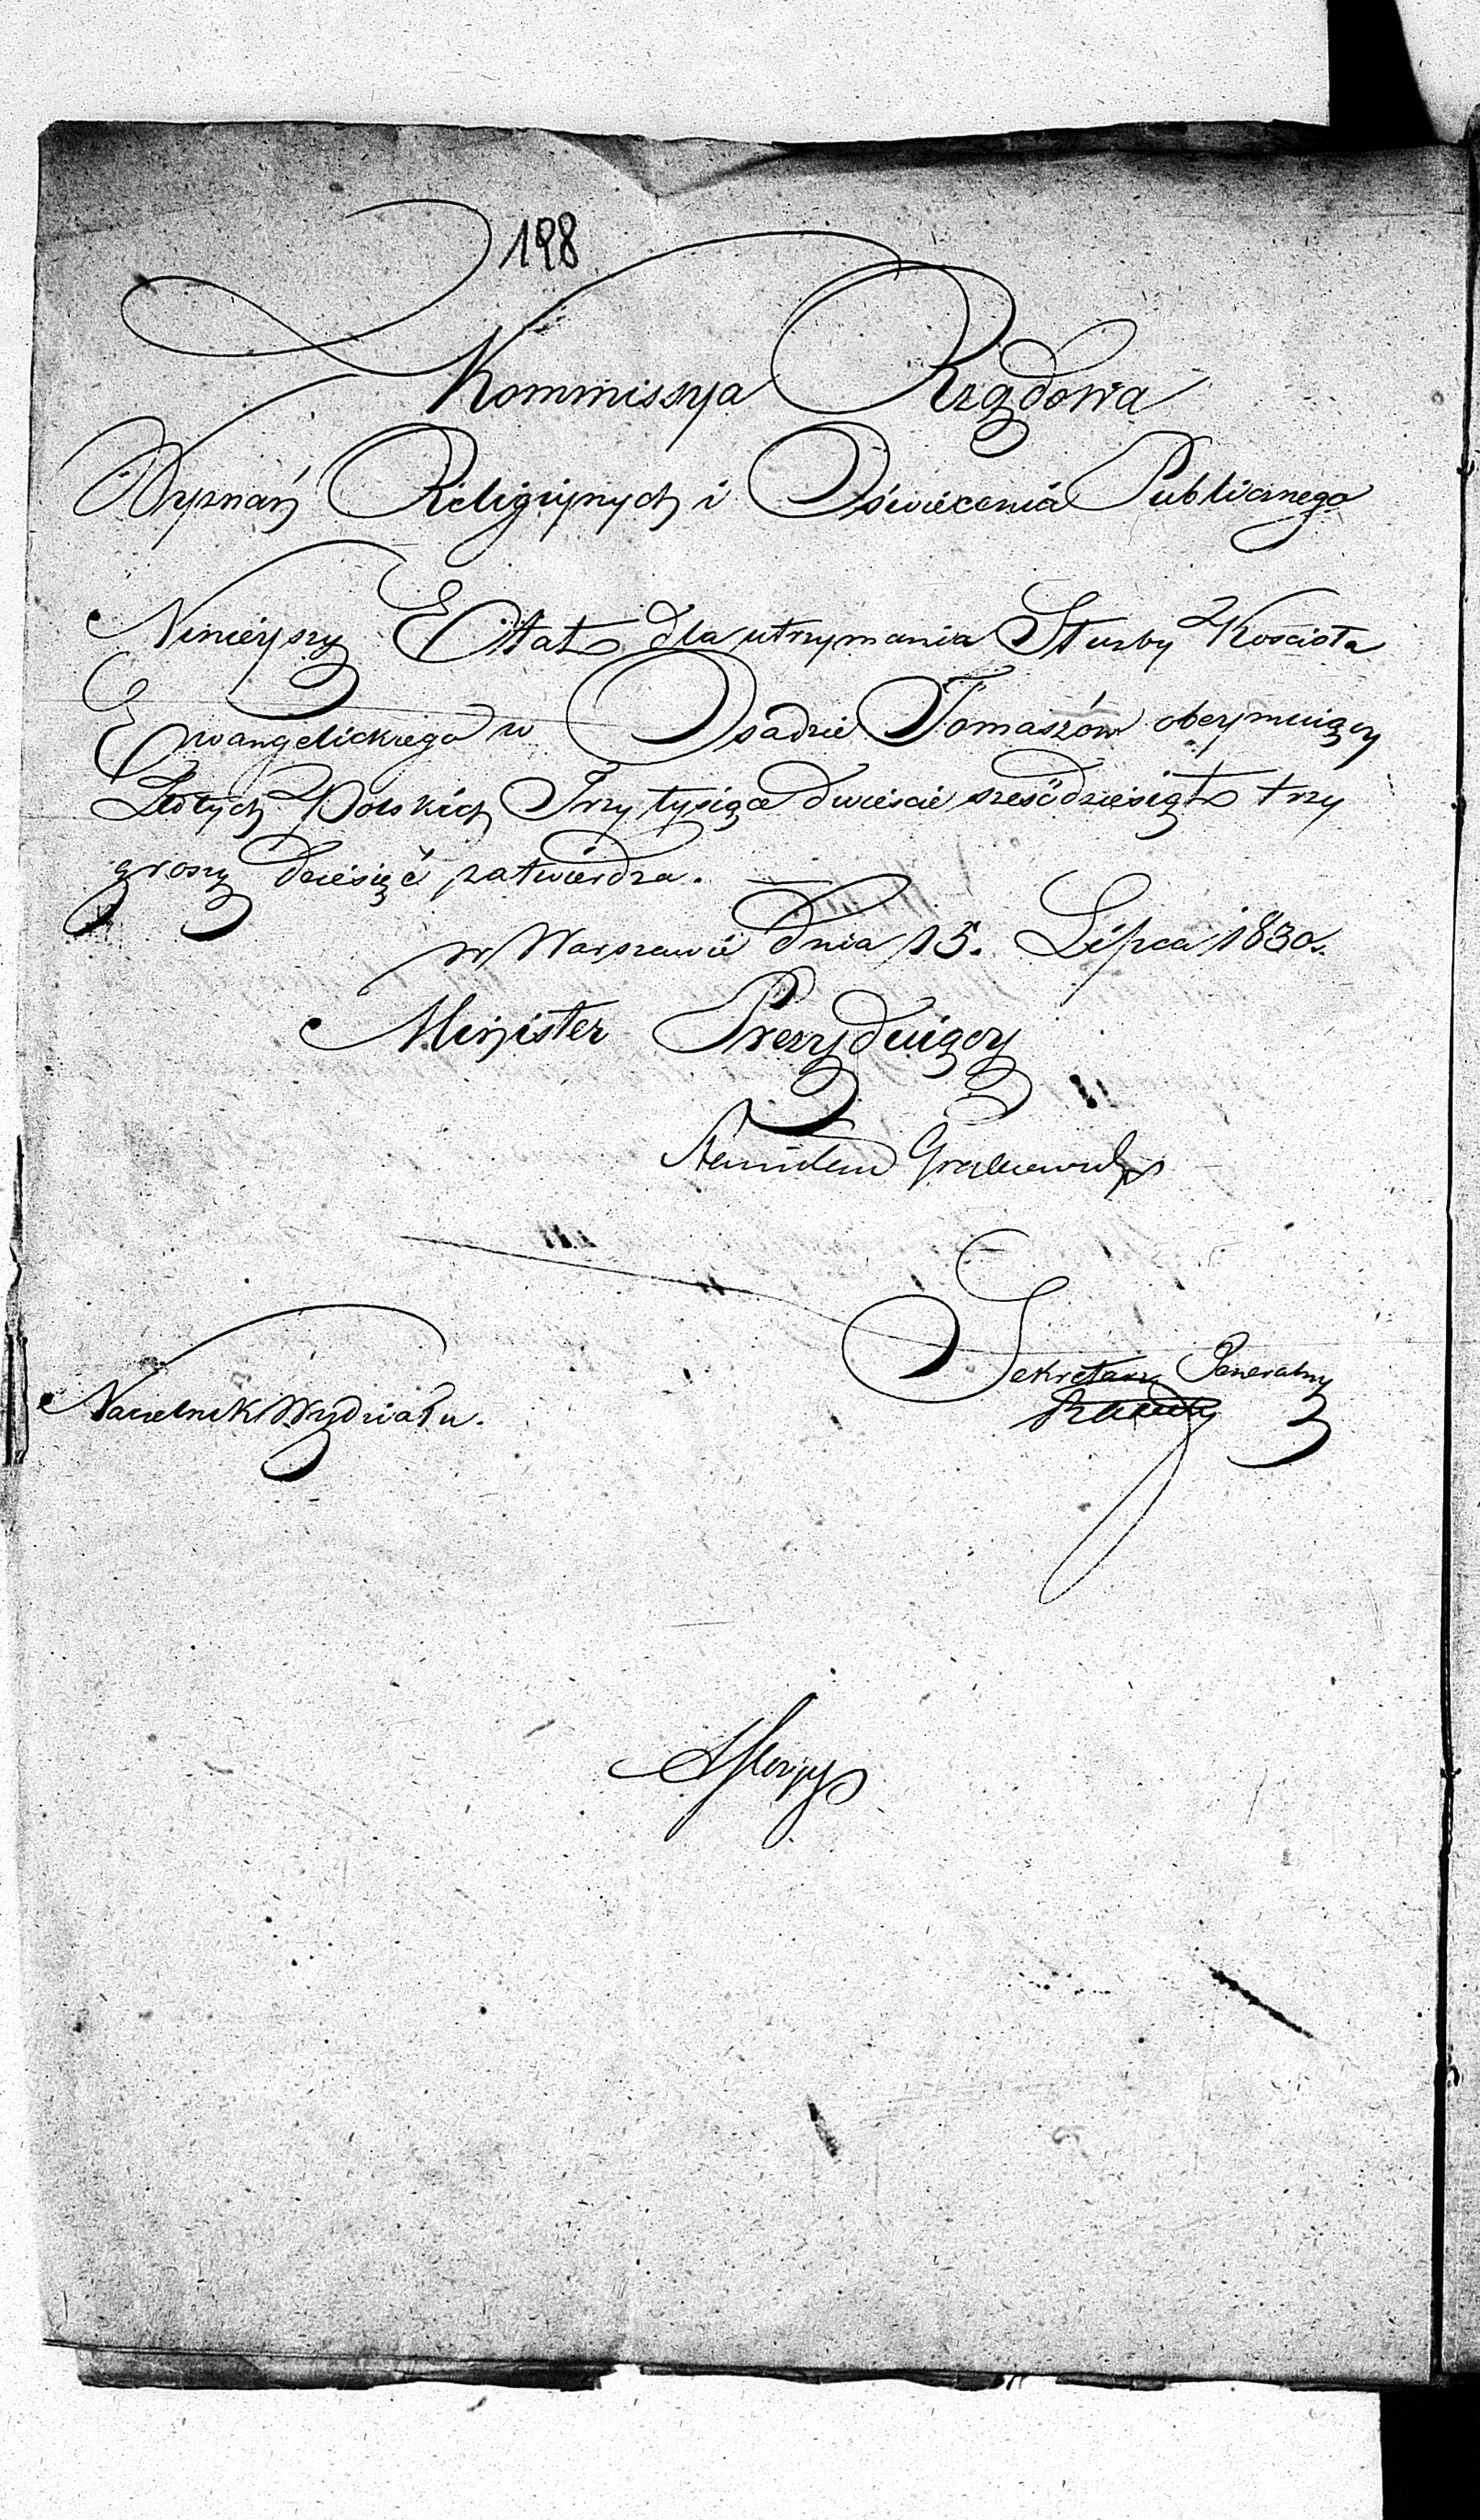 198
Kommissya Rządowa
Wyznań Religiynych i Oświecenia Publicznego
Ninieyszy Etat dla utrzymania Służby Kościoła
Ewangelickiego w Osadzie Tomaszów obeymuiący
Złotych Polskich Trzy tysiące dwieście sześćdziesiąt trzy
groszy dziesięć zatwierdza.
w Warszawie dnia 15. Lipca 1830 r.
Minister Prezyduiący
Stanisław Grabowski
Sekretarz Generalny
Naczelnik Wydziału.